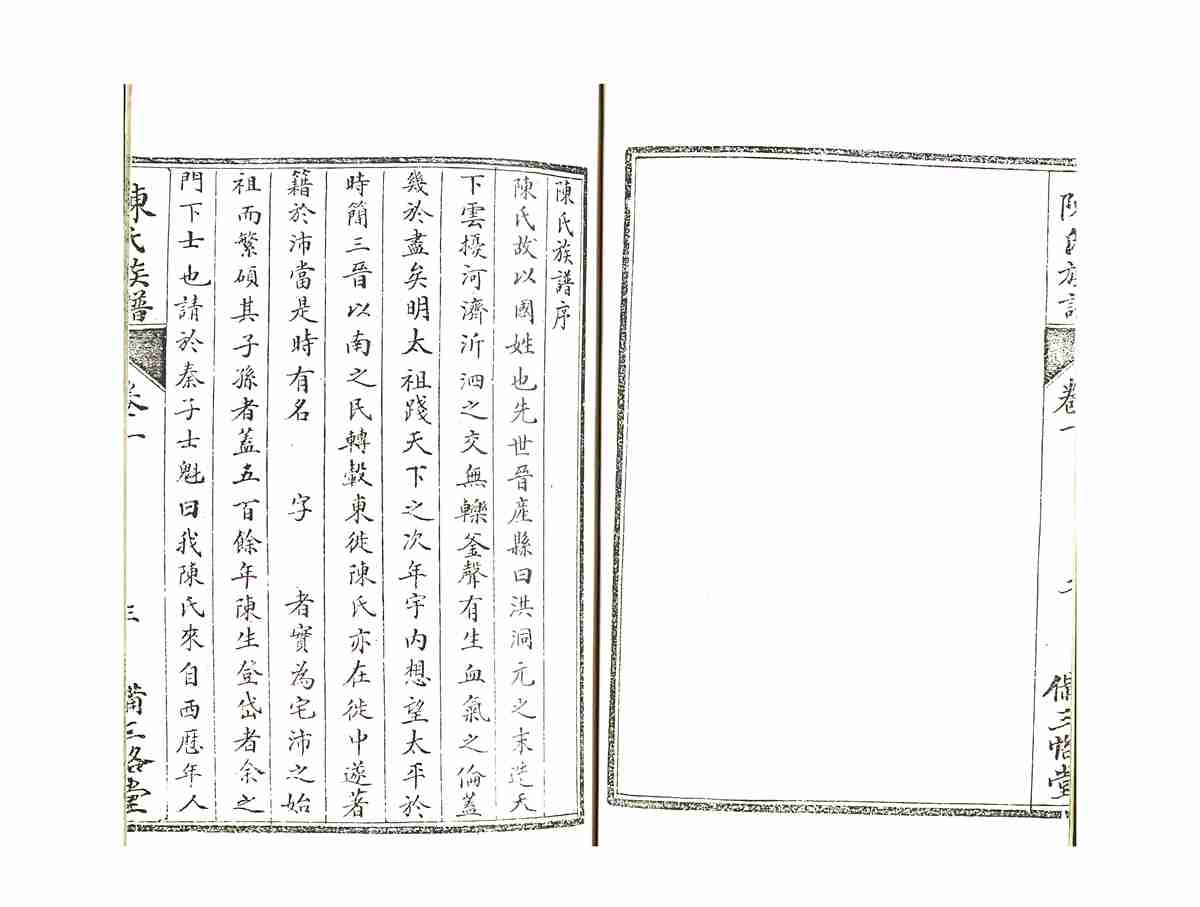 陳氏族譜
卷一
二
備三恪堂
陳氏族譜序
陳氏故以國姓也先世晉產縣曰洪洞元之末造天
下雲擾河濟沂泗之交無轢釜聲有生血氣之倫蓋
幾於盡矣明太祖踐天下之次年宇內想望太平於
時簡三晉以南之民轉轂東徙陳氏亦在徙中遂著
籍於沛當是時有名 字 者實為宅沛之始
祖而繁碩其子孫者蓋五百餘年陳生登岱者余之
門下士也請於秦子士魁曰我陳氏來自西歷年人
陳氏族譜
卷一
三
備三恪堂